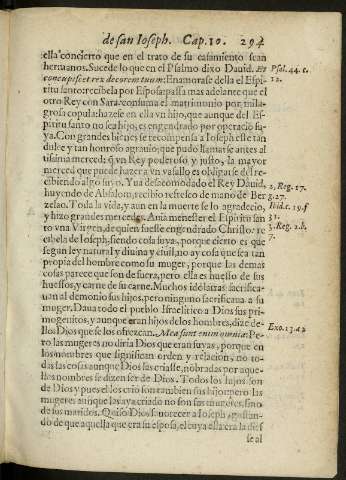 de san Ioseph. Cap. 10. 294
ella concierto que en el trato de su casamiento sean
hermanos. Sucede lo que en el Psalmo dixo Dauid. Et
concupiscet rex decorem tuum: Enamorase della el Espi-
ritu santo: recibela por Esposa: passa mas adelante que el
otro Rey con Sara: consuma el matrimonio por mila-
grosa copula: hazese en ella vn hijo, que aunque del Es-
piritu santo no sea hijo, es engendrado por operació su-
ya. Con grandes bienes se recompensa a Ioseph esse tan
dulce y tan honroso agrauio, que pudo llamarse antes al
tissima merced: q̃ vn Rey poderoso y justo, la mayor
merced que puede hazer a vn vasallo es obligarse del re-
cibiendo algo suyo. Yua desacomodado el Rey Dauid,
huyendo de Absalon, recibio refresco de mano de Ber
zelao. Toda la vida, y aun en la muerte se lo agradecio,
y hizo grandes mercedes. Auia menester el Espiritu san
to vna Virgen, de quien fuesse engendrado Christo: re
cibela de Ioseph, siendo cosa suya, porque cierto es que
segun ley natural y diuina y ciuil, no ay cosa que sea tan
propia del hombre como su muger, porque las demas
cosas parece que son de fuera, pero ella es huesso de sus
huessos, y carne de su carne. Muchos idolatras sacrifica-
uan al demonio sus hijos, pero ninguno sacrificaua a su
muger. Daua todo el pueblo Israelitico a Dios sus pri-
mogenitos, y aunque eran hijos de los hombres, dize de-
llos Dios que se los ofrezcan. Mea sunt enim omnia: Pe-
ro las mugeres no diria Dios que eran suyas, porque en
los nombres que significan orden y relacion, no to-
das las cosas aunque Dios las criasse, nóbradas por aque-
llos nombres se dizen ser de Dios. Todos los hijos son
de Dios y pues el los crio son tambien sus hijos: pero las
mugeres aunque las aya criado no son sus mugeres, sino
de sus maridos. Quiso Dios fauorecer a Ioseph, gustan-
do de que aquella que era su esposa, el cuya ella era la dies
se al
Psal. 44. c.
12.
2. Reg. 17.
g. 27.
Ibid. c. 19. f
31.
3. Reg. 2. b.
7.
Exo. 13. a 2